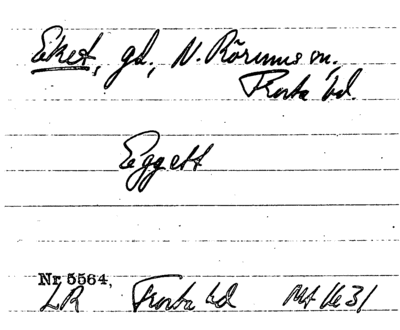 Eket, gd., N. Rörums sn,
Frosta hd.
Eggett
Nr 5564,
LR Frosta hd Ms 1631